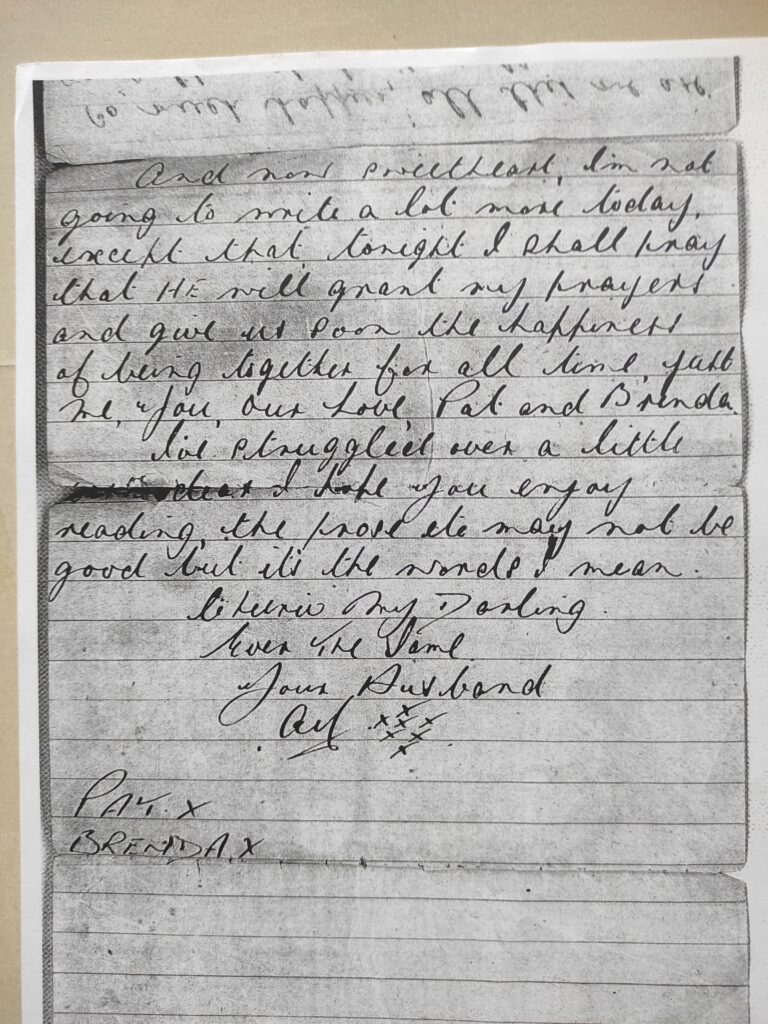 And now sweetheart, I'm not
going to write a lot more today,
except that tonight I shall pray
that HE will grant my prayers
and give us soon the happiness
of being together for all time, just
me, you, our love, Pat and Brenda.
I've struggled over a little
I hope you enjoy
reading, the prose etc may not be
good but it's the words I mean.
Cheerio My Darling.
Ever The Same
Your Husband
xxxxxxx
PAT. X
BRENDA. X